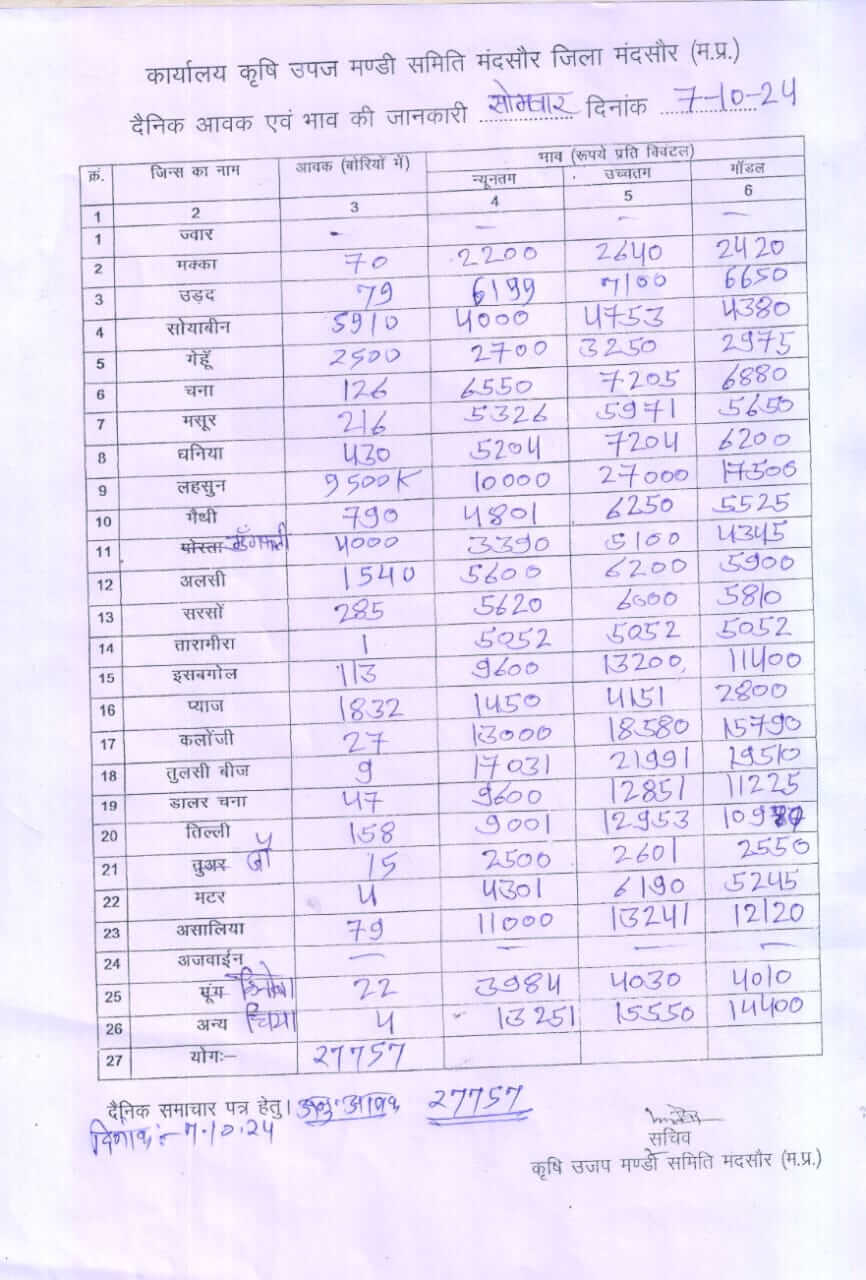 कार्यालय कृषि उपज मण्डी समिति मंदसौर जिला मंदसौर (म.प्र.)
दैनिक आवक एवं भाव की जानकारी सोमवार दिनांक 7-10-24
क्रं. जिन्स का नाम आवक (बोरियों में) भाव (रूपये प्रति क्विंटल)
न्यूनतम उच्चतम मॉडल
1 2 3 4 5 6
1 ज्वार - - - -
2 मक्का 70 2200 2640 2420
3 उड़द 79 6199 7100 6650
4 सोयाबीन 5910 4000 4753 4380
5 गेहूँ 2500 2700 3250 2975
6 चना 126 6550 7205 6880
7 मसूर 216 5326 5971 5650
8 धनिया 430 5204 7204 6200
9 लहसुन 9500K 10000 27000 17500
10 मैथी 790 4801 6250 5525
11 पोस्ता 4000 3390 5100 4345
12 अलसी 1540 5600 6200 5900
13 सरसों 285 5620 6000 5810
14 तारामीरा 1 5052 5052 5052
15 इसबगोल 113 9600 13200 11400
16 प्याज 1832 1450 4151 2800
17 कलोंजी 27 13000 18580 15790
18 तुलसी बीज 9 17031 21991 19510
19 डालर चना 47 9600 12851 11225
20 तिल्ली 158 9001 12953
21 तुअर जौ 15 2500 2601 2550
22 मटर 4 4301 6190 5245
23 असालिया 79 11000 13241 12120
24 अजवाईन - - - -
25 मूंग 22 3984 4030 4010
26 अन्य चिया 4 13251 15550 14400
27 योगः- 27757
दैनिक समाचार पत्र हेतु। कुल आवक 27757
दिनांक:- 7.10.24
सचिव
कृषि उजप मण्डी समिति मंदसौर (म.प्र.)